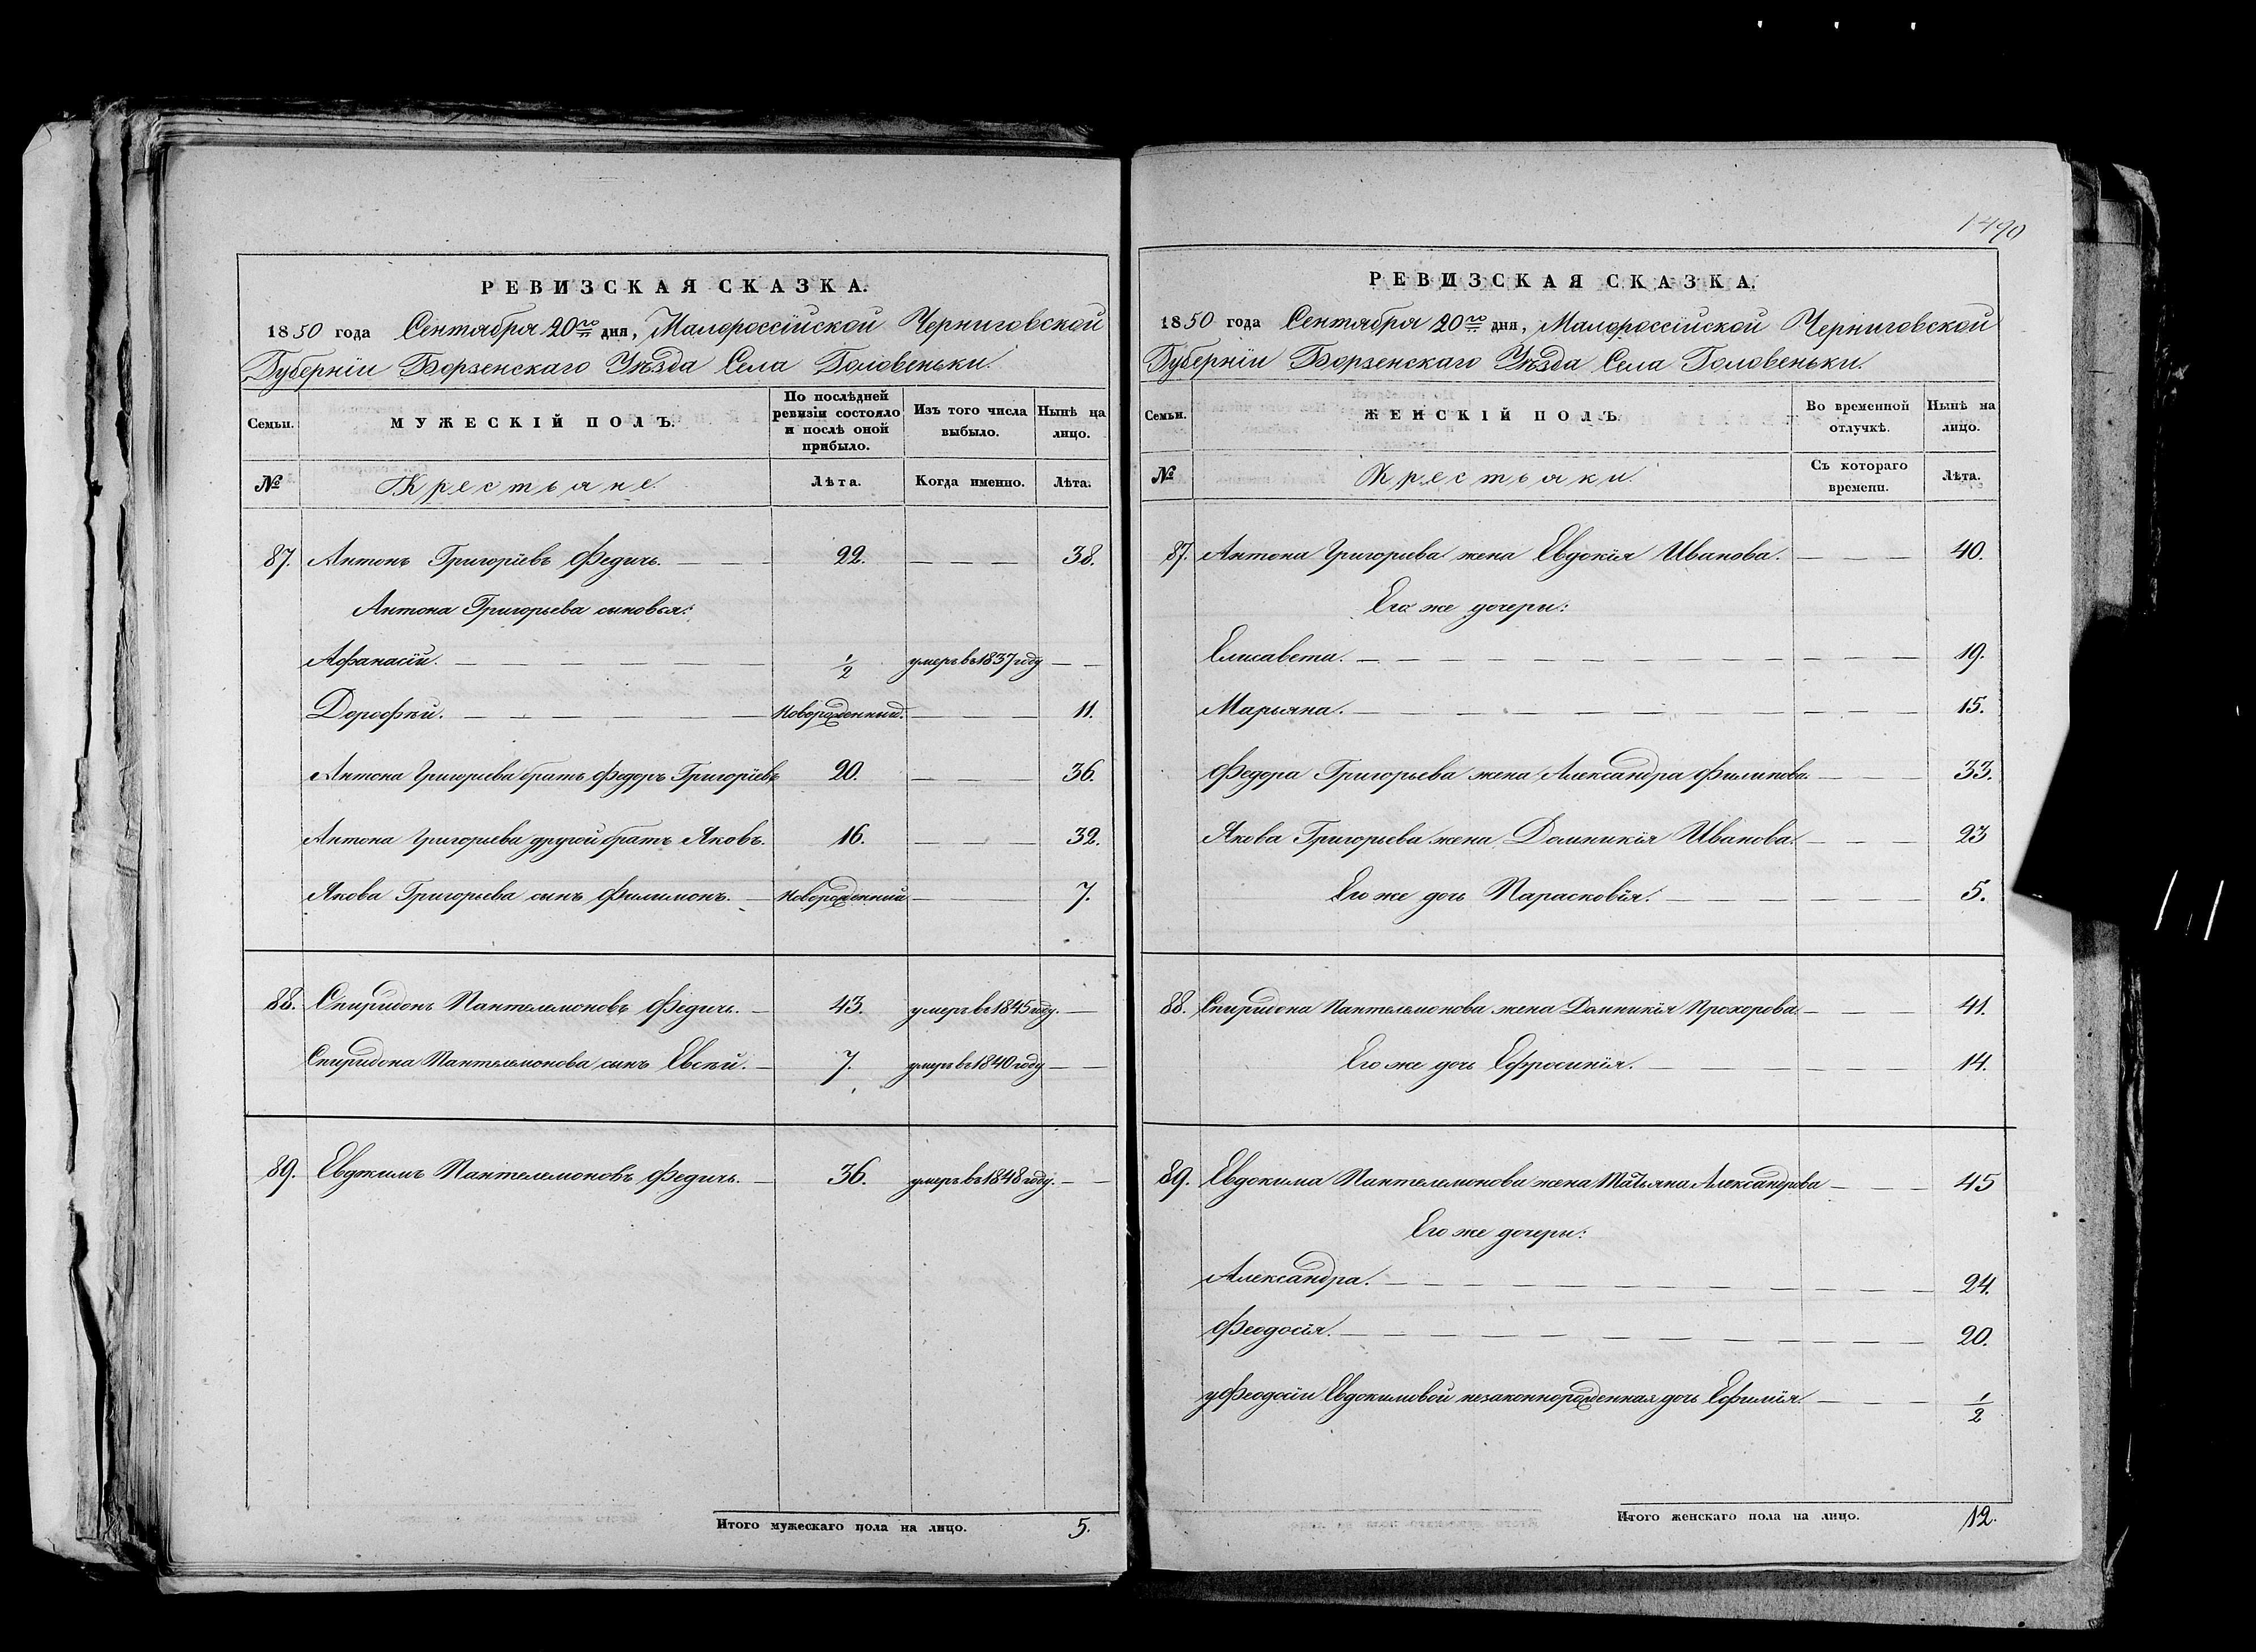 РЕВИЗСКАЯ СКАЗКА.
1850 года Сентября 20го дня, Малороссійской Черниговской
Губерніи Борзенскаго Уѣзда Села Головеньки.
Семьи.
МУЖЕСКІЙ ПОЛЪ.
По послѣдней ревизіи состояло и послѣ оной прибыло.
Изъ того числа выбыло.
Нынѣ на лицо.
№ Крестьяне. Лѣта. Когда именно. Лѣта.
87. Антонъ Григоріевъ Федичъ. — — — 22. — — — 38.
Антона Григорьева сыновья:
Афанасій. — — — — — 1/2 умеръ въ 1837 году — —
Дорофѣй. — — — — — Новорожденный. — — — 11.
Антона Григорьева братъ Федоръ Григоріевъ 20. — — — 36.
Антона Григорьева другой братъ Яковъ. 16. — — — 32.
Якова Григорьева сынъ Филимонъ. — Новорожденный — — — 7.
88. Спиридонъ Пантелемоновъ Федичъ. — 43. умеръ въ 1845 году. —
Спиридона Пантелемонова сынъ Евсѣй. — 7. умеръ въ 1840 году — —
89. Евдокимъ Пантелемоновъ Федичъ. — 36. умеръ въ 1848 году. — —
Итого мужескаго пола на лицо. 5.
1490
РЕВИЗСКАЯ СКАЗКА.
1850 года Сентября 20го дня, Малороссійской Черниговской
Губерніи Борзенскаго Уѣзда Села Головеньки.
Семьи.
ЖЕНСКІЙ ПОЛЪ.
Во временной отлучкѣ.
Нынѣ на лицо.
№ Крестьяки. Съ котораго времени. Лѣта.
87. Антона Григорьева жена Евдокія Иванова. — — — 40.
Его же дочери:
Елисавета. — — — — — 19.
Марьяна. — — — — — 15.
Федора Григорьева жена Александра Филипова. — — 33.
Якова Григорьева жена Домникія Иванова. — — — 23
Его же дочь Парасковія. — — — — — 5.
88. Спиридона Пантелемонова жена Домникія Прохорова. — — — 41.
Его же дочь Ефросинія. — — — — 14.
89. Евдокима Пантелемонова жена Татьяна Александрова — — — 45
Его же дочери:
Александра. — — — — — 24.
Феодосія. — — — — — 20.
у Феодосіи Евдокимовой незаконнорожденная дочь Ефимія. — — — 1/2
Итого женскаго пола на лицо. 12.